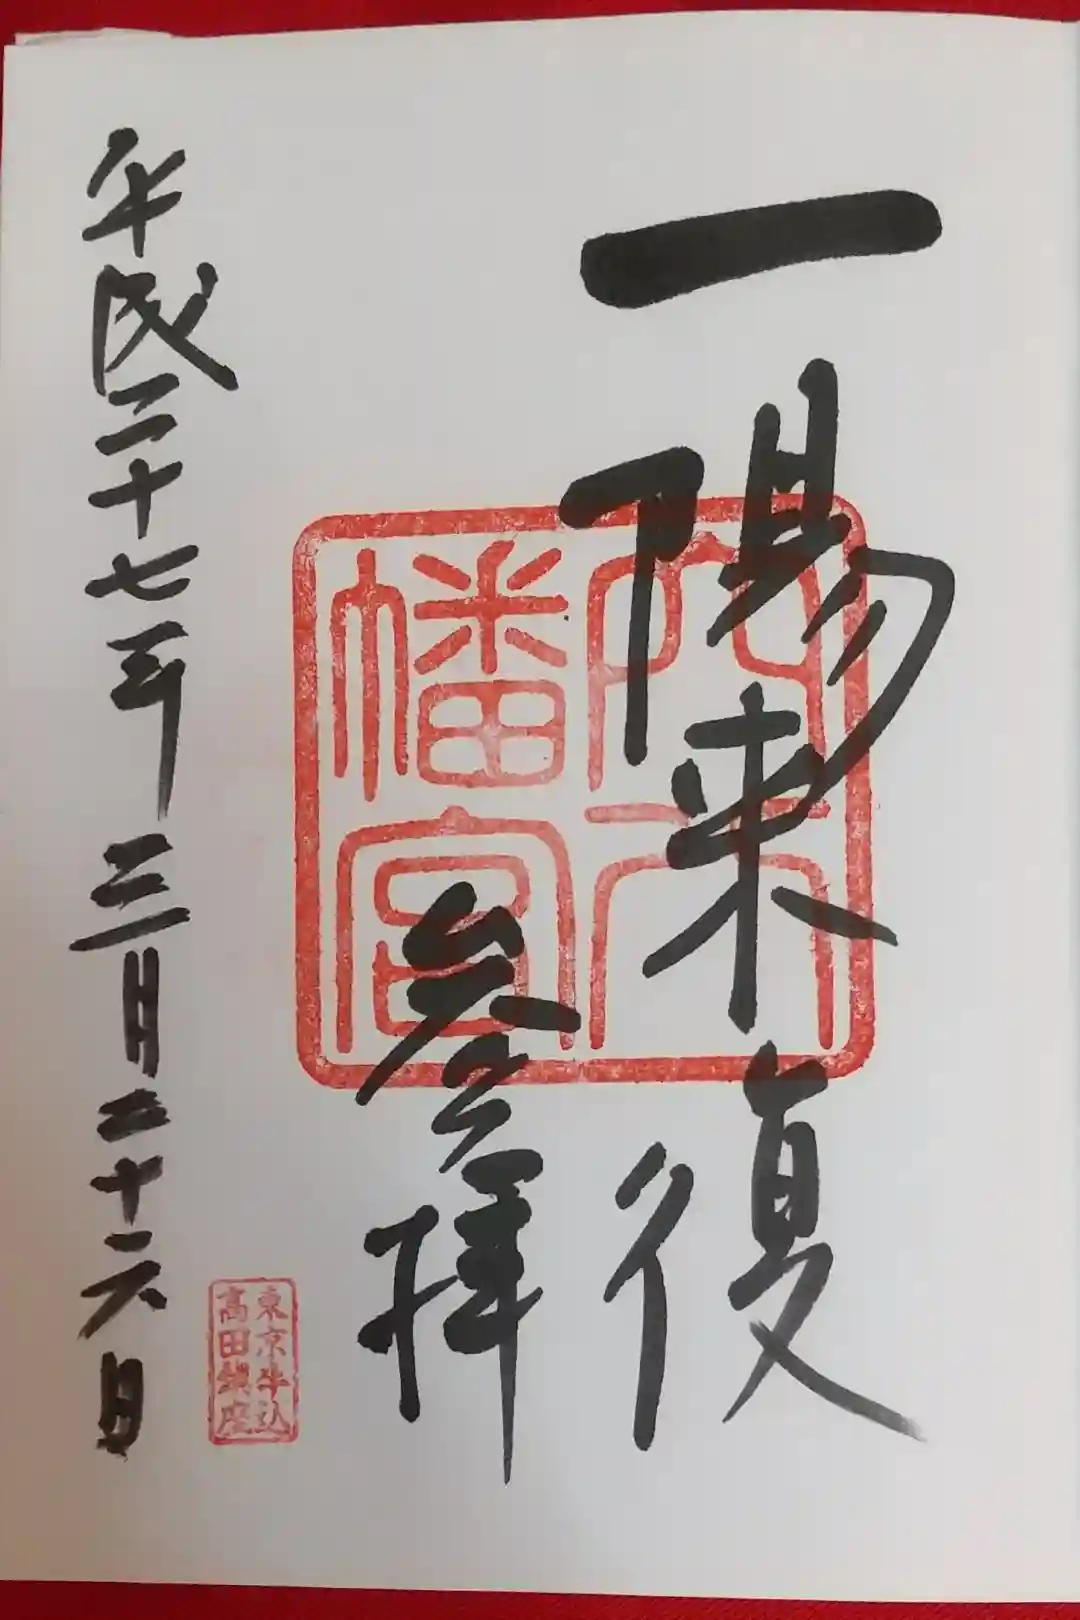 一陽来復
参拝
穴八
幡宮
東京牛込
高田鎮座
平成二十七年 三月二十六日